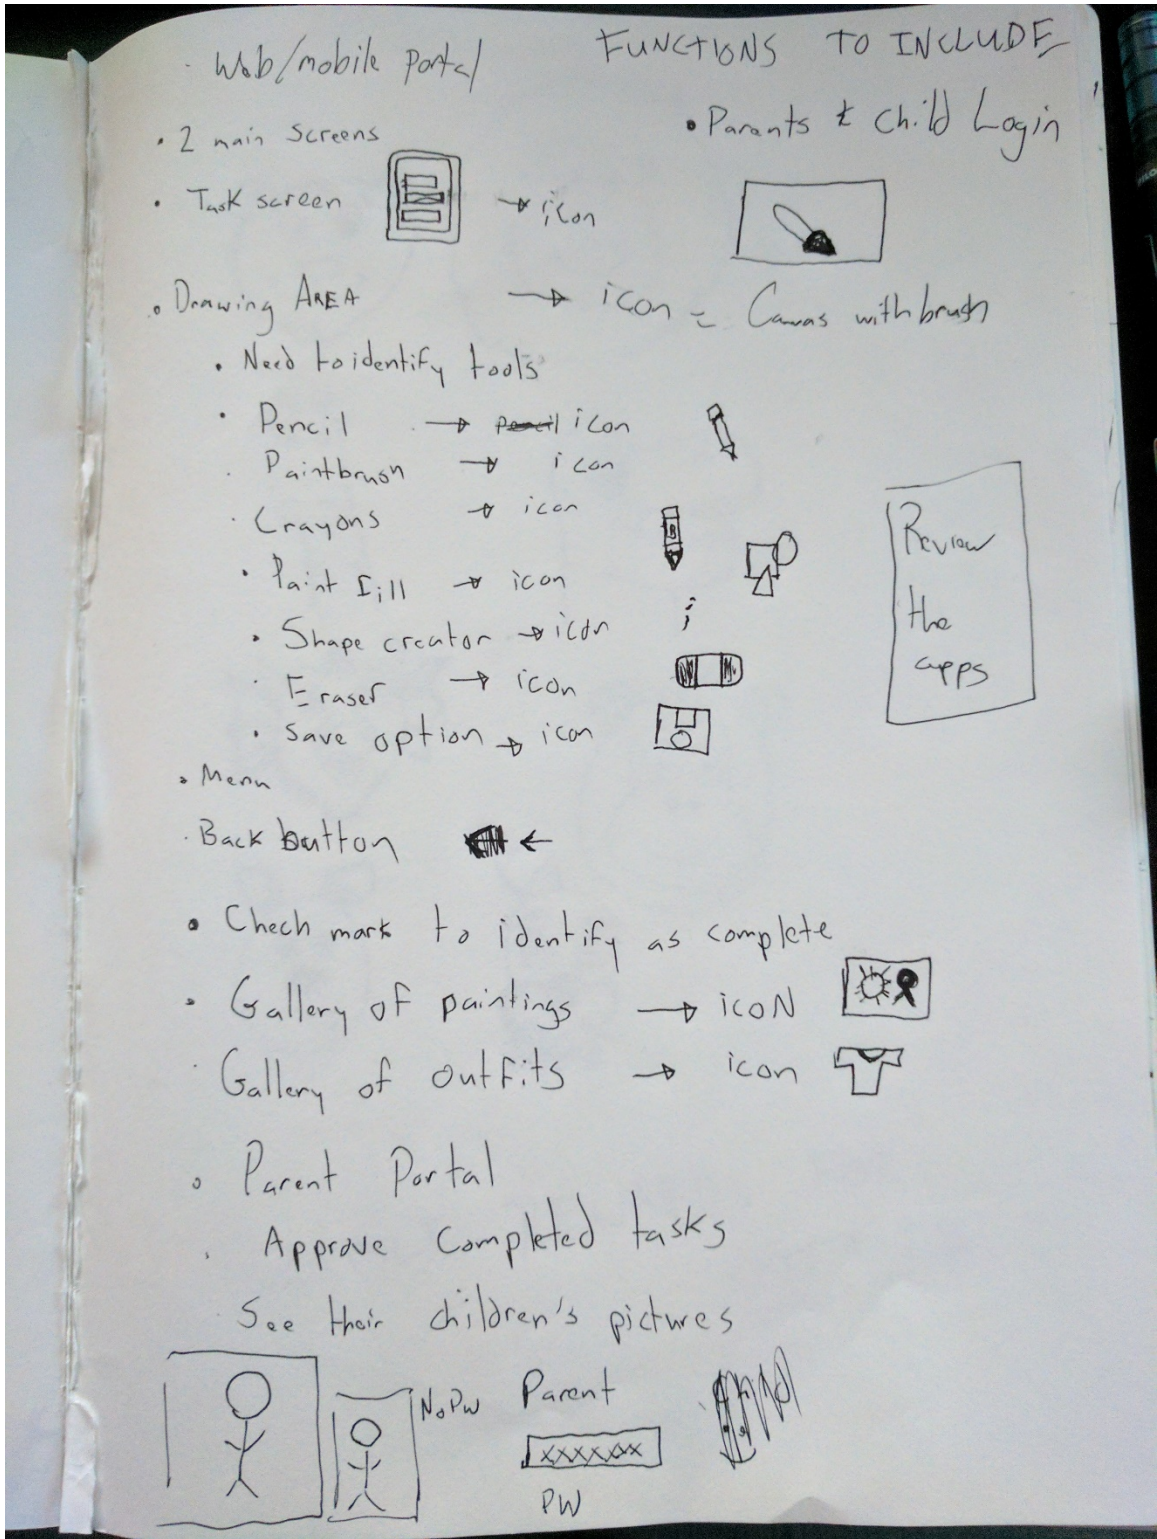 Web/mobile portal
FUNCTIONS TO INCLUDE
• Parents & Child Login
• 2 main screens
• Task screen → icon
• Drawing AREA → icon = Canvas with brush
• Need to identify tools
• Pencil → pencil icon
• Paintbrush → icon
• Crayons → icon
B
• Paint fill → icon
• Shape creator → icon
• Eraser → icon
• Save option → icon
Review
the
apps
• Menu
• Back button ←
• Chech mark to identify as complete
• Gallery of paintings → icoN
• Gallery of outfits → icon
• Parent Portal
• Approve Completed tasks
• See their children's pictures
NoPW
Parent
XXXXXX
PW